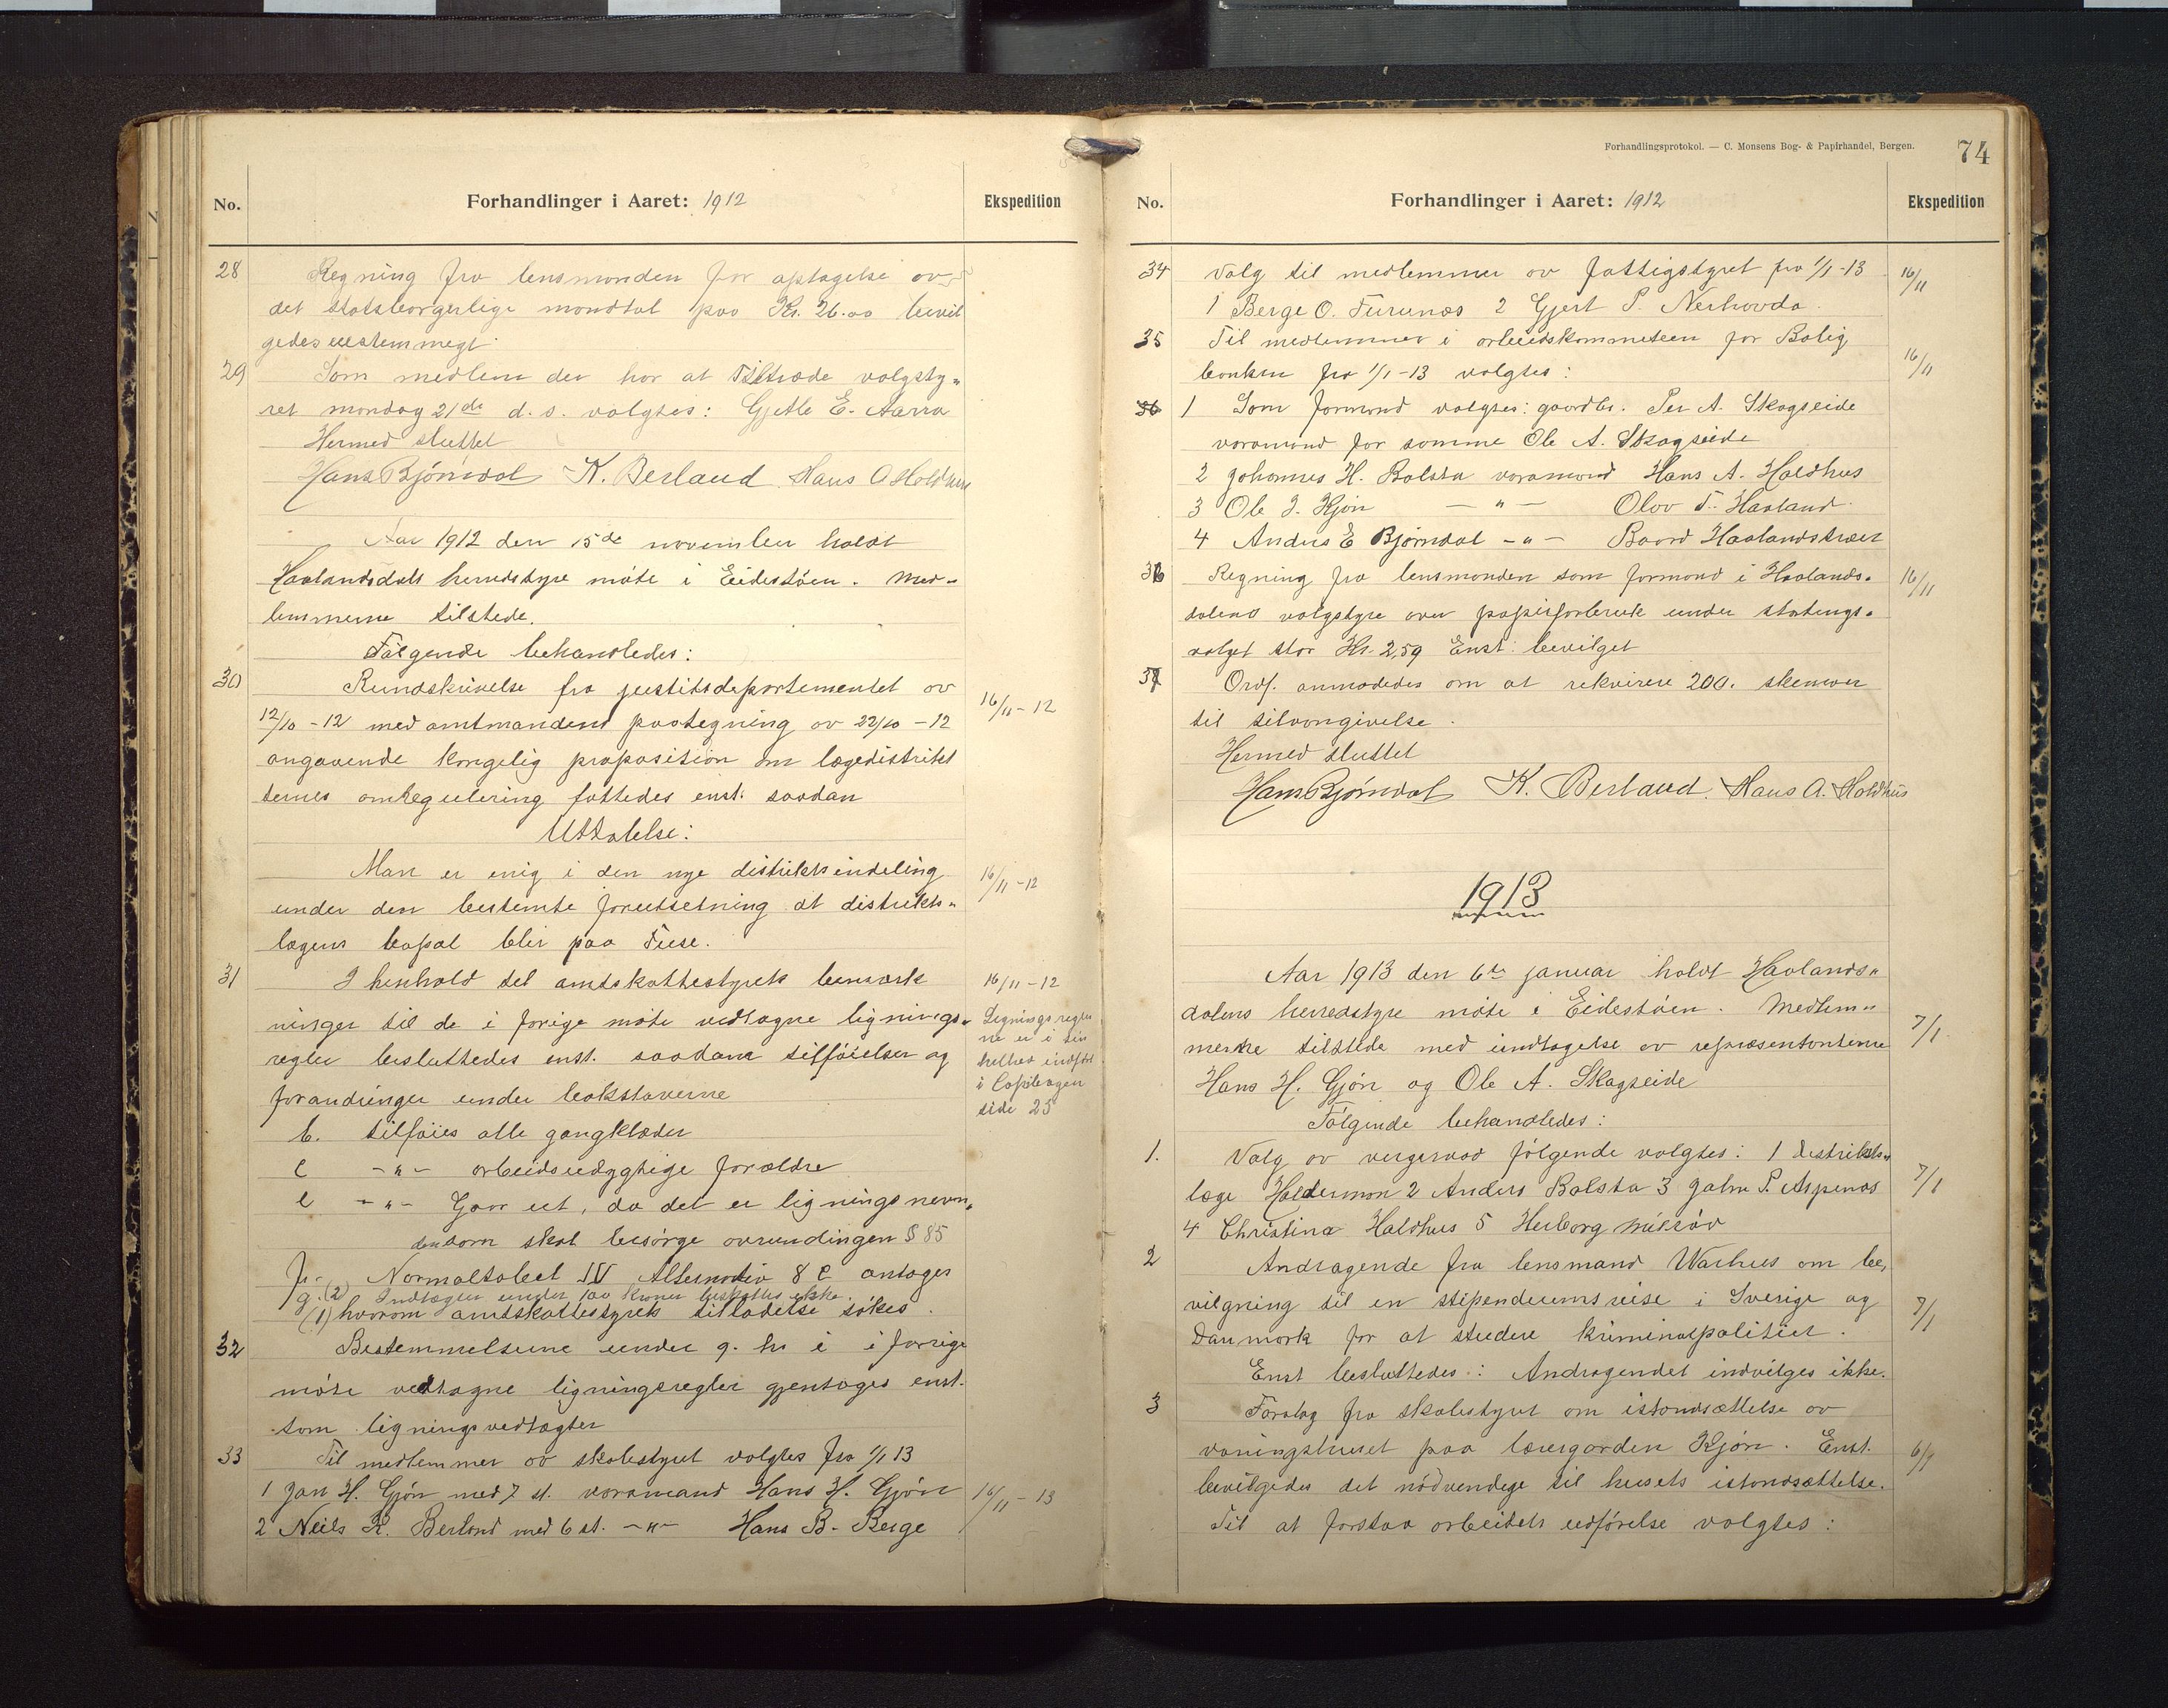 No.
Forhandlinger i Aaret: 1912
Ekspedition
28 Regning fra lensmanden for optagelse av
det statsborgerlige mandtal paa Kr. 26.00 bevil
gedes eenstemmegt.
29 Som medlem der har at tiltræde valgsty„
ret mandag 21de d. s. valgtes: Gjetle E. Aarra
Hermed sluttet
Hans Bjørndal K. Berland Hans A Holdhus
Aar 1912 den 15de november holdt
Haalandsdals herredstyre møte i Eidestøen. Med„
lemmerne tilstede.
Følgende behandledes:
30 Rundskrivelse fra justitsdepartementet av
12/10 - 12 med amtmandens paategning av 22/10 - 12
angaaende kongelig proposition om lægedistrikt
ternes omregulering fattedes enst. saadan
16/11 - 12
Uttalelse:
Man er enig i den nye distriktsindeling
under den bestemte forutsetning at distrikts„
lægens bopæl blir paa Fuse.
16/11 - 12
31 I henhold til amtskattestyrets bemærk
ninger til de i forrige møte vedtagne lignings„
regler besluttedes enst. saadane tilføielser og
forandringer under bokstaverne
16/11 - 12
Ligningsregler
ne er i sin
helhet indført
i Copibogen
side 25
b. tilføies alle gangklæder
c - „ - arbeidsudygtige forældre
e - „ - Gaar ut, da det er ligningsnevn„
den som skal besørge avrundingen § 85
f. Normaltabel IV Alternativ 8 C antages
g. (2) Indtægter under 100 kroner beskattes ikke.
(1) hvorom amtskattestyrets tilladelse søkes.
32 Bestemmelserne under g. h. i i forrige
møte vedtagne ligningsregler gjentages enst.
som ligningsvedtægter
33 Til medlemmer av skolestyret valgtes fra 1/1 13
1 Jan H. Gjøn med 7 st. varamand Hans H. Gjøn 16/11 - 13
2 Neils K. Berland med 6 st. - „ - Hans B. Berge
Forhandlingsprotokol. — C. Monsens Bog- & Papirhandel, Bergen.
74
No.
Forhandlinger i Aaret: 1912
Ekspedition
34 Valg til medlemmer av fattigstyret fra 1/1 - 13 16/11
1 Berge O. Furunæs 2 Gjert P. Nerhovda.
35 Til medlemmer i arbeidskommeteen for Bolig
banken fra 1/1 - 13 valgtes: 16/11
36 1 Som formand valgtes: gaardbr. Per A. Skogseide
varamand for samme Ole A. Skogseide
2 Johannes H. Bolsta varamand Hans A. Holdhus
3 Ole J. Kjøn - „ - Olav T. Haaland.
4 Anders E Bjørndal - „ - Baard Haalandstræet
36 Regning fra lensmanden som formand i Haalands„ 16/11
dalens valgstyre over papirforbruk under statings„
valget stor Kr. 2,59 Enst. bevilget
37 Ordf. anmodedes om at rekvirere 200. skemaer
til silvangivelse.
Hermed sluttet
Hans Bjørndal K. Berland. Hans A. Holdhus
1913
Aar 1913 den 6te januar holdt Haalands„
dalens herredstyre møte i Eidestøen. Medlem„
merne tilstede med undtagelse av repræsentanterne 7/1
Hans H. Gjøn og Ole A. Skogseide
Følgende behandledes:
1. Valg av vergeraad følgende valgtes: 1 distrikts„
læge Haldermon 2 Anders Bolsta 3 Johs P. Aspenæs 7/1
4 Christina Holdhus 5 Herborg
2 Andragende fra lensmand Warhus om be„
vilgning til en stipendiumsreise i Sverige og
Danmark for at studere kriminalpolitiet. 7/1
Enst besluttedes: Andragendet indvilges ikke.
3 Forslag fra skolestyret om istandsættelse av
vaaningshuset paa lærergarden Kjøn. Enst. 6/1
bevilgedes det nødvendige til husets istandsættelse.
Til at forstaa arbeidets utførelse valgtes: